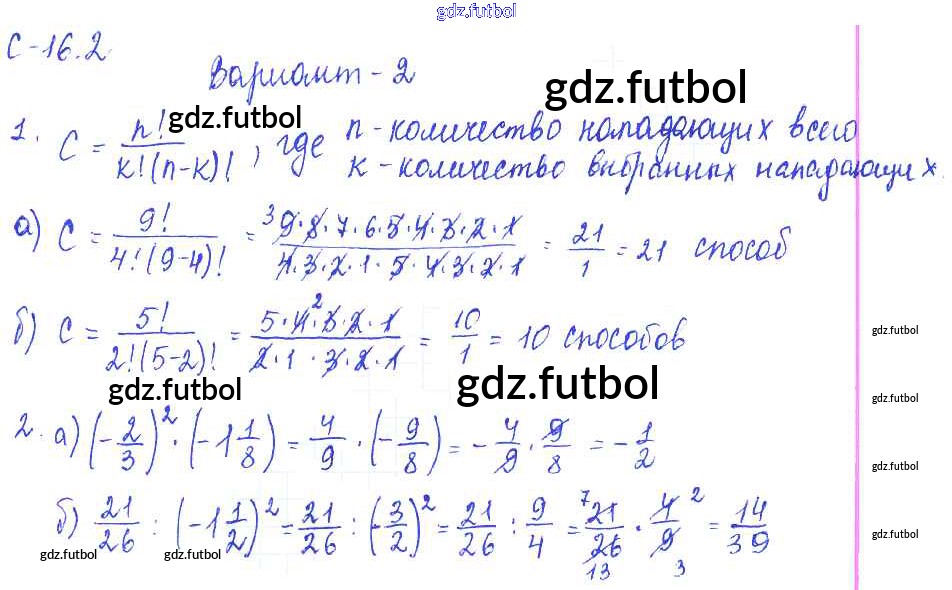 gdz.futbol
С-16.2
Вариант - 2
gdz.futbol
gdz.futbol
1. C = n! / k!(n-k)! , где n - количество нападающих всего
k - количество выбранных нападающих.
а) C = 9! / 4!(9-4)! = ³9·8·7·6·5·4·3·2·1 / 4·3·2·1·5·4·3·2·1 = 21/1 = 21 способ
б) C = 5! / 2!(5-2)! = 5·4²·3·2·1 / 2·1·3·2·1 = 10/1 = 10 способов
gdz.futbol
gdz.futbol
gdz.futbol
gdz.futbol
2. а) (-2/3)² · (-1 1/8) = 4/9 · (-9/8) = - 4/9 · 9/8 = - 1/2
gdz.futbol
б) 21/26 : (-1 1/2)² = 21/26 : (-3/2)² = 21/26 : 9/4 = ⁷21/26 13 · 4²/9 3 = 14/39
gdz.futbol
gdz.futbol
gdz.futbol